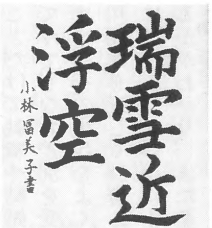 瑞雪近
浮空
小林冨美子書